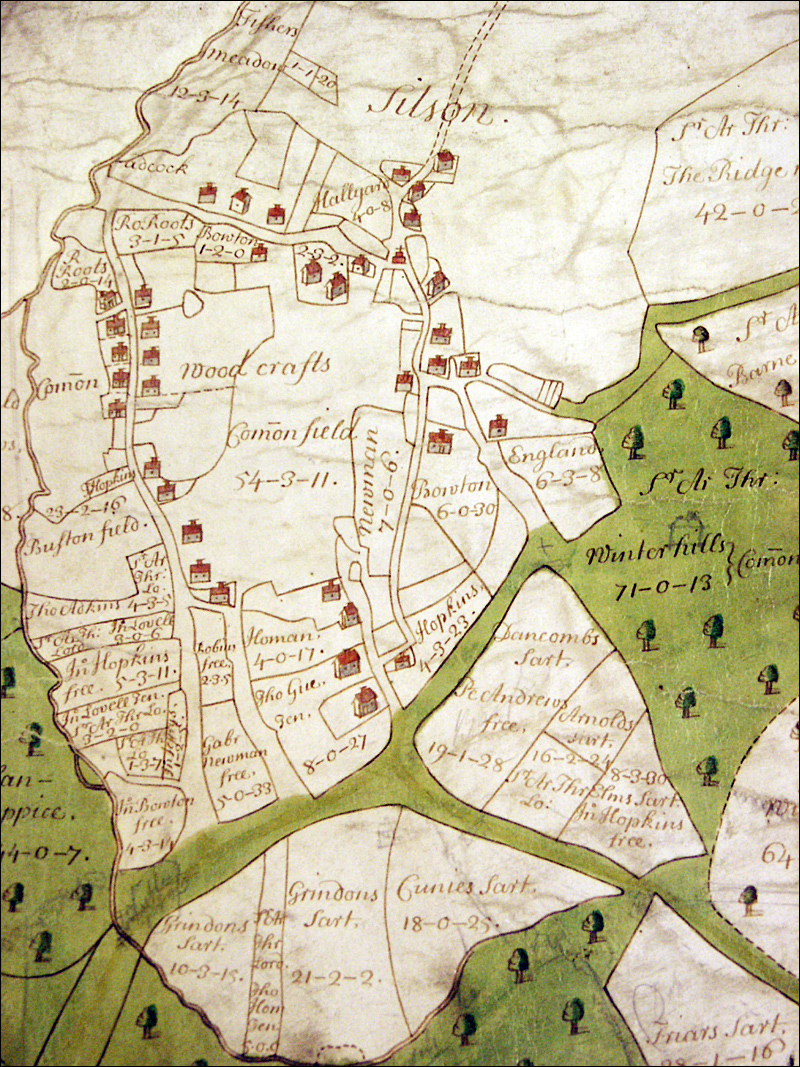 Fishers
meadow
1-1-20
12-3-14
Silson.
Sr Ar Thr:
The Ridge
42-0-2
Hallyard
4-0-8
Ro: Roots
3-1-5
Bowton
1-2-0
2-3-2
R
Roots
2-0-14
Sr A
Barne
Com̄on
Wood crafts
Com̄on field
54-3-11.
Newman
7-0-6.
Bowton
6-0-30
England
6-3-8
Sr Ar Thr:
Winterhills
71-0-13
Com̄on
Hopkins
23-2-16
Buston field.
8.
Sr Ar
Thr:
Lo:
4-3-5
Tho Adkins
Sr Ar Th:
Lord
Th: Lovell
3-0-6
Jn Hopkins
free. 5-3-11.
Jn Lovell Ten.
Sr Ar Thr Lo.
3-2-0
Sr Ar Th
2-3-7
Jn Bowton
free.
4-3-14
Robins
free.
2-3-5
Homan.
4-0-17.
Tho Gue.
Ten.
8-0-27
Gabr
Newman
free.
5-0-33
Hopkins,
4-3-23
Dancombs
Sart.
Pe Andrews
free,
19-1-28
Arnolds
Sart.
16-2-24
Sr Ar Thr
Lo:
8-3-30
Elms Sart.
Jn Hopkins
free.
an-
ppice.
44-0-7.
64
Grindons
Sart.
10-3-15.
Sr Ar
Thr
Lord.
Tho
Hom
Ten.
5-0-0
Grindons
Sart.
21-2-2.
Cunies Sart.
18-0-25.
Friars Sart.
28-1-16